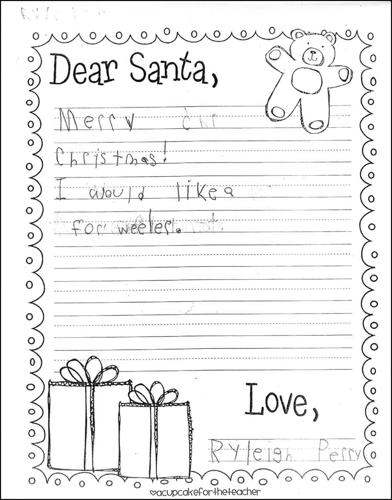 Dear Santa,
Merry chr
Christmas!
I would like a
for weeler.
Love,
Ryleigh Perry
©acupcakefortheteacher